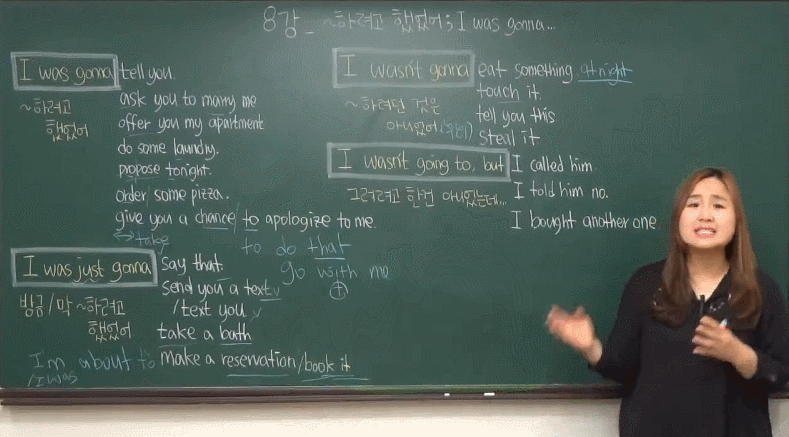 8강_ ~하려고 했었어; I was gonna...
I was gonna tell you.
~하려고 했었어
ask you to marry me
offer you my apartment
do some laundry.
propose tonight.
order some pizza.
give you a chance/to apologize to me.
↔take
to do that
go with me
I was just gonna say that.
방금/막 ~하려고 했었어
send you a text
/text you
take a bath
I'm about to make a reservation/book it
/I was
I wasn't gonna eat something at night
~하려던 것은 아니었어
touch it.
tell you this
steal it
I wasn't going to, but I called him.
그러려고 한건 아니었는데...
I told him no.
I bought another one.